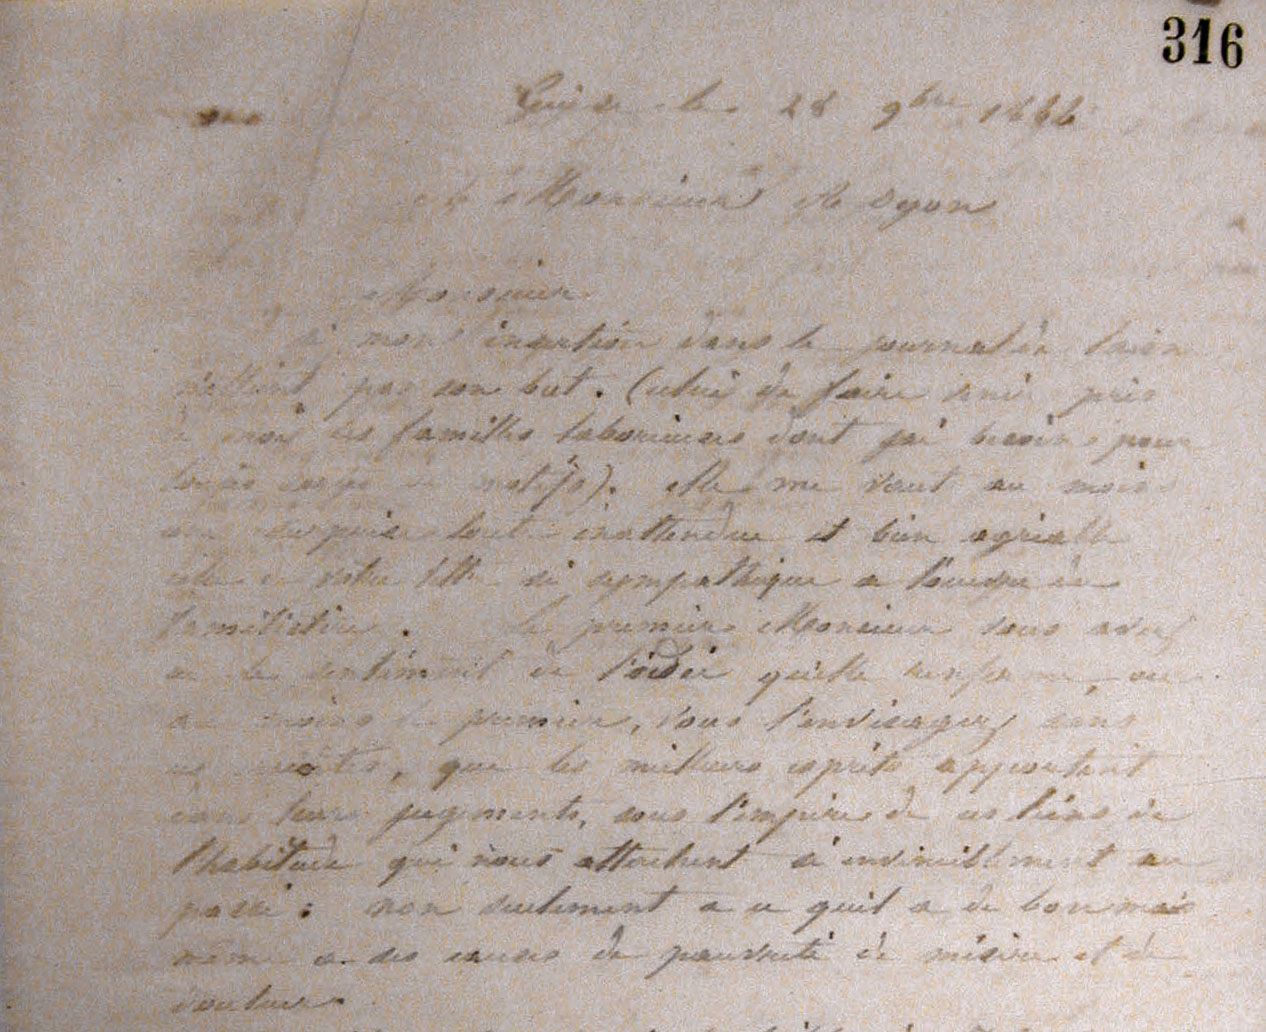 316
Guise le 28 9bre 1866
Monsieur à Lyon
Monsieur
Si mon insertion dans le journal de
n'atteint pas son but. (celui de faire venir près
de moi les familles laborieuses dont j'ai besoin pour
motifs). elle me vaut au moins
une surprise toute inattendue et bien agréable
celle de votre lettre si sympathique a l'oeuvre du
familistère. Le premier Monsieur vous avez
eu le sentiment de l'idée qu'elle renferme, ou
au moins le premier, vous l'envisagez sans
ces que les meilleurs esprits apportent
dans leurs jugements, sous l'empire de ces liens de
l'habitude qui nous attachent si invinciblement au
passé: non seulement a ce quil a de bon mais
même a des causes de pauvreté de misère et de
douleur.